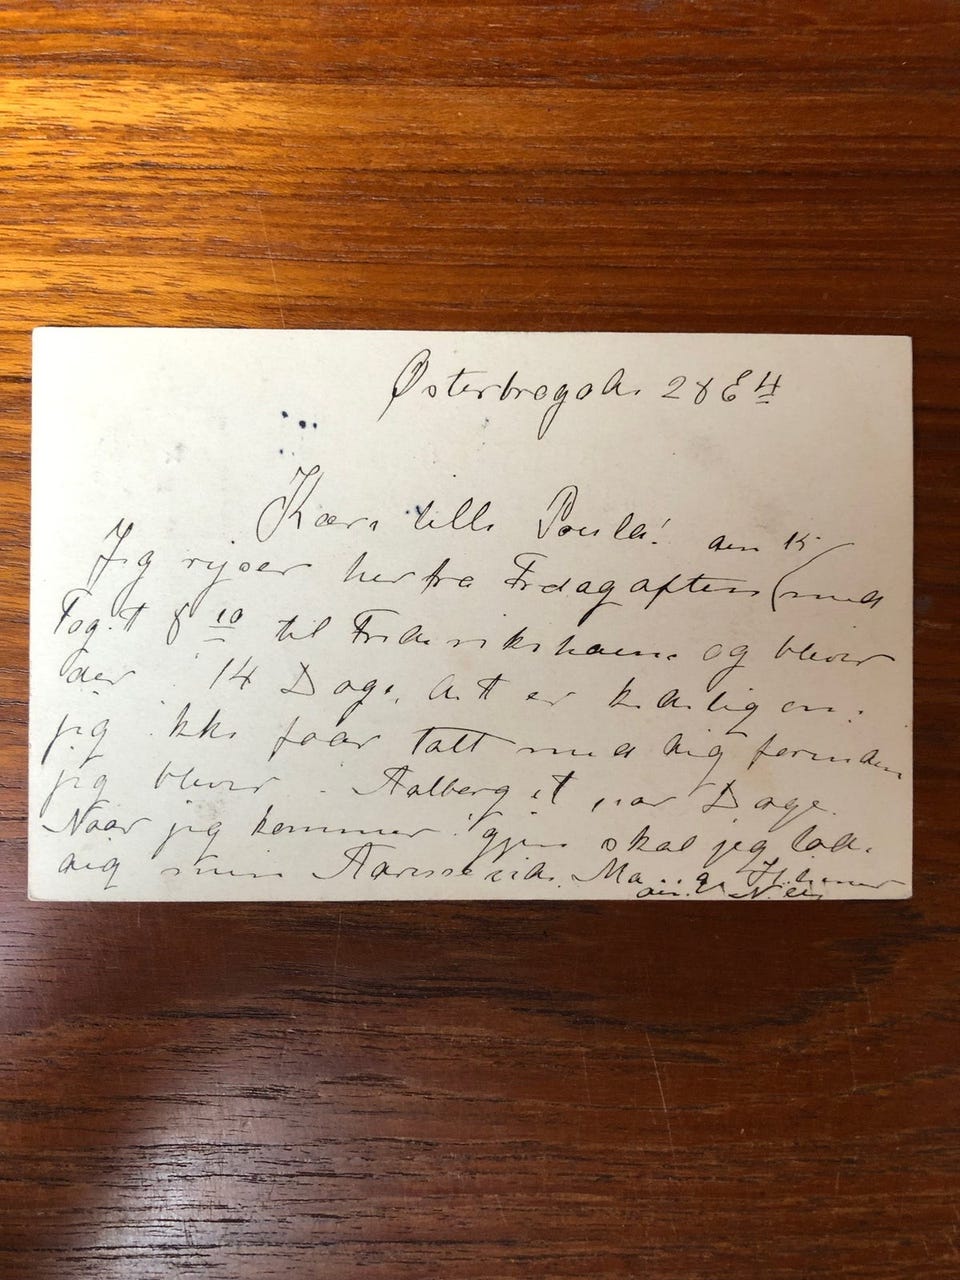 Østerbrogade 28 E 4
Kære lille Poula!
Jeg rejser herfra Fredag aften den 15 (med
Toget 8 10 til Frederikshavn og bliver
der 14 Dage. Det er kedelig om
jeg ikke faar talt med dig forinden
jeg bliver i Aalborg et par Dage
Naar jeg kommer igjen skal jeg
dig min